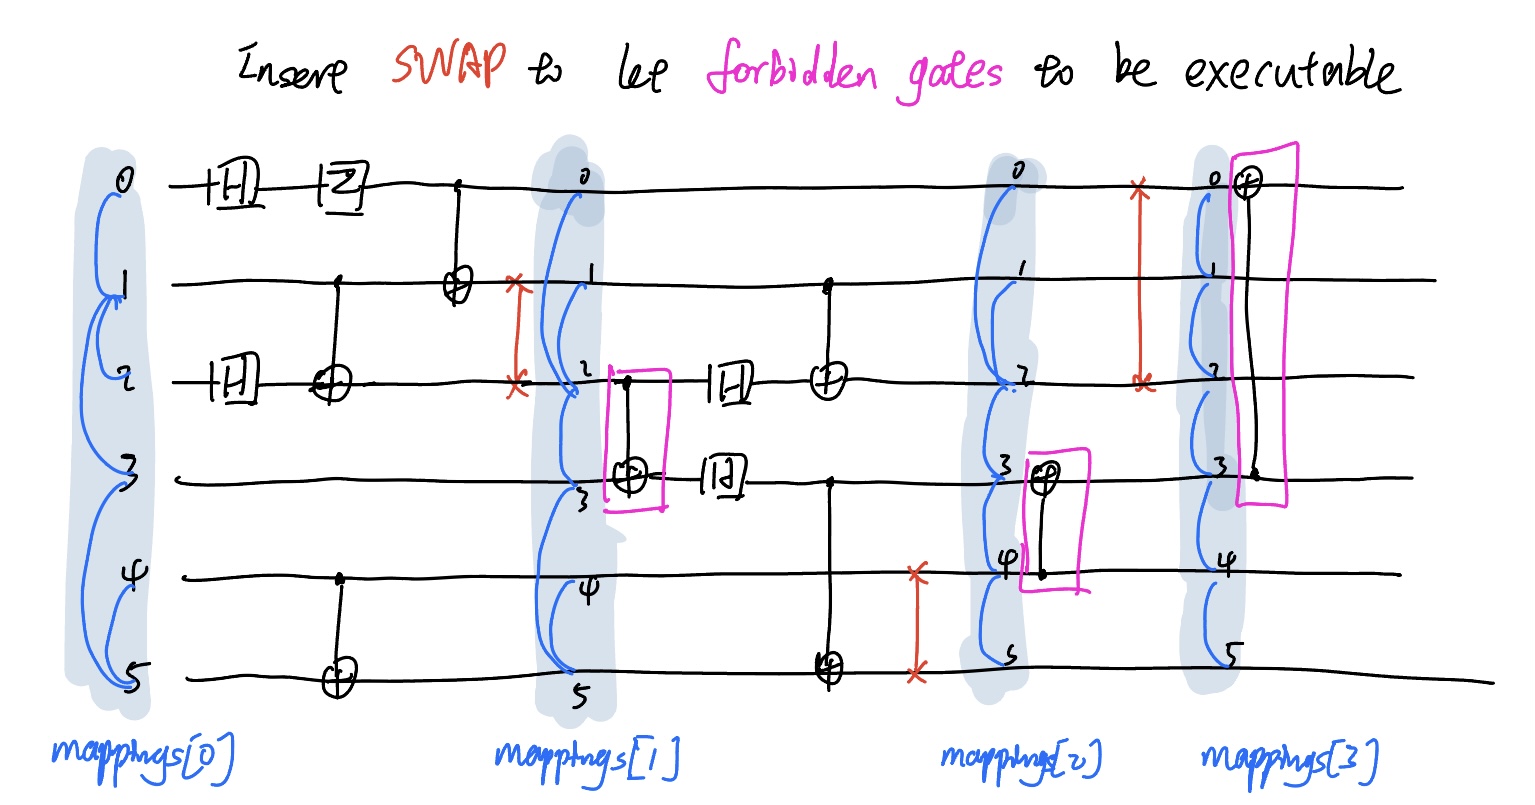 Insert SWAP to let forbidden gates to be executable
0 H Z 0 0 0
1 1 1 1
2 H 2 H 2 2
3 3 Id 3 3
4 4 4 4
5 5 5 5
mappings[0] mappings[1] mappings[2] mappings[3]